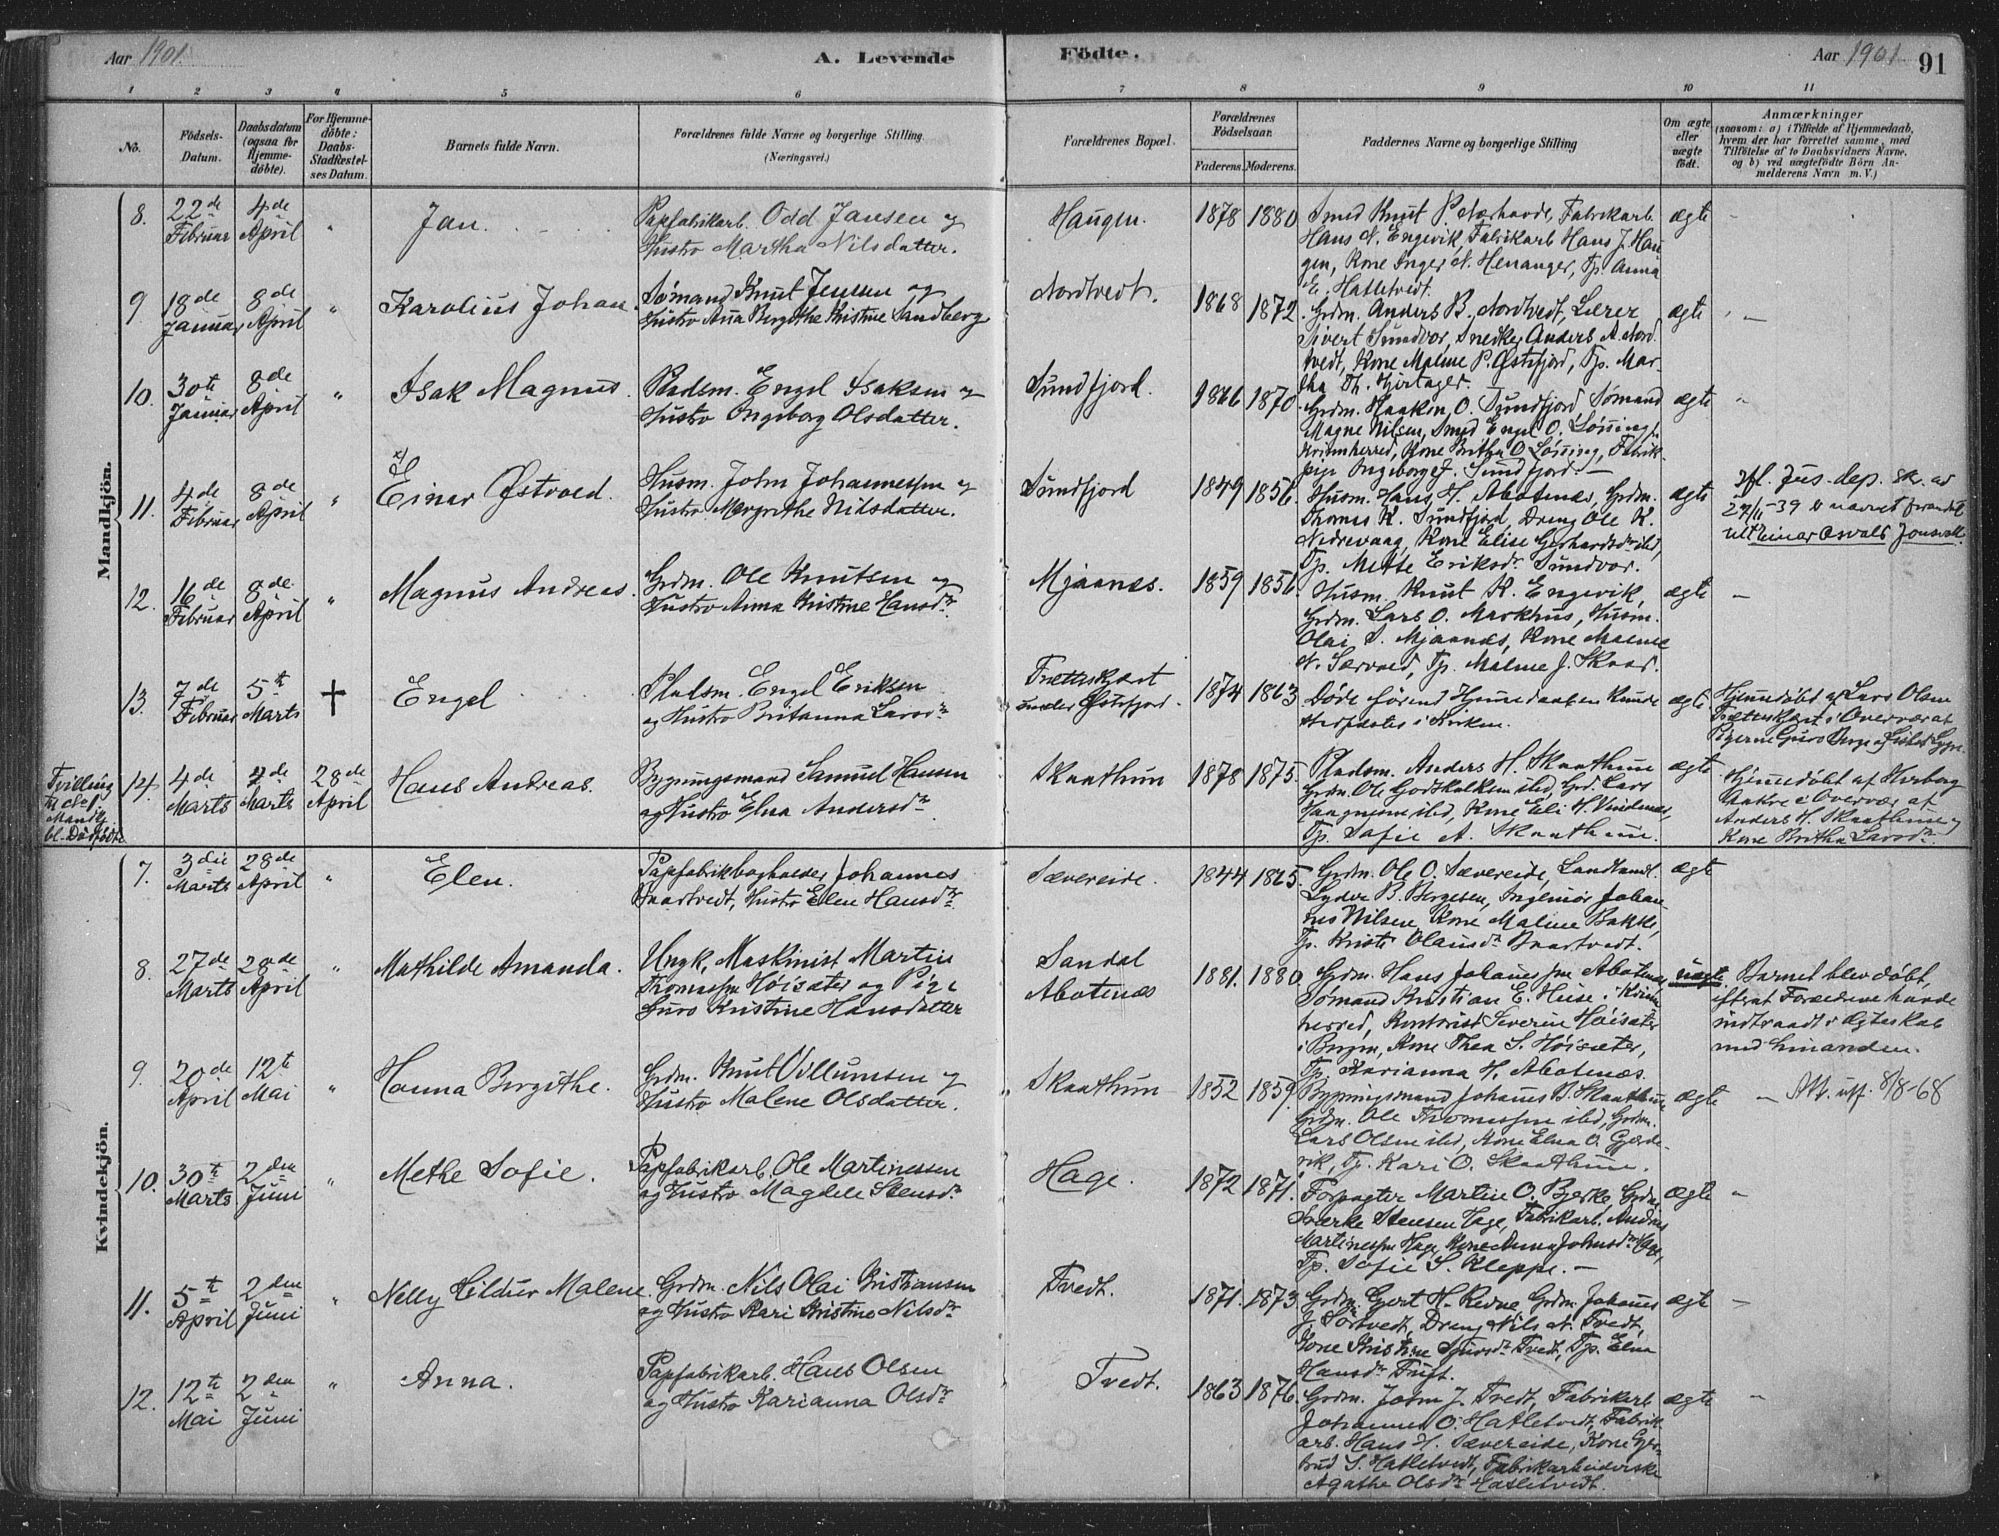 Aar 1901.
A. Levende
Födte.
Aar 1901.
91
1 2 3 4 5 6 7 8 9 10 11
No.
Födsels-Datum.
Daabsdatum (ogsaa for Hjemme-döbte).
For Hjemme-döbte: Daabs-Stadfæstel-ses Datum.
Barnets fulde Navn.
Forældrenes fulde Navne og borgerlige Stilling. (Næringsvei.)
Forældrenes Bopæl.
Forældrenes Födselsaar.
Faderens. Moderens.
Faddernes Navne og borgerlige Stilling
Om ægte eller uægte födt.
Anmærkninger
(saasom: a) i Tilfælde af Hjemmedaab,
hvem der har forrettet samme, med
Tilföielse af to Daabsvidners Navne,
og b) ved uægtefödte Börn An-
melderens Navn m. V.)
Mandkjön.
8. 22de Februar 4de April " Jan.
Papfabrikarb. Odd Jansen og
Hustro Martha Nilsdatter.
Haugen. 1878 1880
Smed Knut P. Fabrikarb.
Hans N. Engevik, Fabrikarb Hans J. Hau-
gen, Kone Inger N. Henanger, Tp. Anna
E. Hatletvedt.
ægte -
9 18de Januar 8de April " Karolius Johan.
Sømand Knut Jensen og
Hustro Ana Bergithe Kristine Sandberg
Nordtvedt. 1868 1872.
Grdm. Anders B. Nordtvedt, Lærer
Sivert Sundvor, Snedker Anders A. Nord
tvedt, Kone Malene P. Østefjord, Tp. Mar-
tha Th. Hjortager.
ægte -
10. 30te Januar 8de April " Isak Magnus.
Pladsm. Engel Isaksen og
Hustro Ingeborg Olsdatter.
Sundfjord. 1866 1870.
Grdm. Haakon O. Sundfjord, Sømand
Magne Nilsen, Smed Engel O. Løssing,
Kvinnherred, Kone Britha O. Løssing, Fabrik-
pige Ingeborg J. Sundfjord -
ægte "
11. 4de Februar 8de April " x) Einar Østvold.
Husm. John Johannessen og
Hustro Margrethe Nilsdatter.
Sundfjord 1849 1856.
Husm. Hans H. Abotenæs, Grdm.
Thomas K. Sundfjord, Dreng Ole K.
Nedrevaag, Kone Elise Gerhardsdr ibd,
Tp. Mette Eriksdr Sundvor.
ægte
Ifl. Jus. dep. sk. av
27/11-39 er navnet forandret
til Einar Osvald Jonsvoll.
12. 16de Februar 8de April " Magnus Andreas.
Grdm. Ole Knutsen og
Hustro Anna Kristine Hansdr
Mjaanes. 1859 1856.
Husm. Knut K. Engevik,
Grdm. Lars O. Markhus, Husm.
Olai S. Mjaanes, Kone Malene
N. Særvold, Tp. Malene J. Skaar.
ægte -
13. 7de Februar 5te Marts + Engel
Pladsm. Engel Eriksen
og Hustro Britanna Larsdr
under Østefjord. 1874 1863
Døde førend Hjemmedaaben kunde
stadfæstes i Kirken.
ægte
Hjemmedøbt af Lars Olsen
i Overvær af
Tvilling
Mandkj.
bl. Dødfødte
14. 4de Marts 4de Marts 28de April Hans Andreas.
Bygningsmand Samuel Hansen
og Hustro Elna Andersdr
Skaathun 1878 1875.
Pladsm. Anders H. Skaathun
Grdm. Ole Godskalksen ibd, Grd. Lars
ibd, Kone Eli H. Vindenæs,
Tp. Sofie A. Skaathun.
ægte
Hjemmedøbt af Herborg
i Overvær af
Anders H. Skaathun og
Kone Britha Larsdr.
Kvindekjön.
7. 3die Marts 28de April " Elen.
Papfabrikbogholder Johannes
Svartvedt, Hustro Elen Hansdr
Sævereide. 1844 1865.
Grdm. Ole O. Sævereide, Landhandl.
Lyder B. Bergesen, Ingeniør Johan-
nes Nilsen, Kone Malene Bakke,
Tp. Kristi Olausdr Svartvedt.
ægte
8. 27de Marts 28de April " Mathilde Amanda.
Ungk. Maskinist Martin
Thomassen Høisæter og Pige
Guro Kristine Hansdatter
Sandal
Abotenæs
1881. 1880
Grdm. Hans Johannessen Abotenæs,
Sømand Kristian E. Huse i Kvinn-
herred, Kontorist Severin Høisæter
i Bergen, Kone Thea S. Høisæter,
Tp. Karianna H. Abotenæs.
uægte
Barnet blev døbt,
efterat Forældrene havde
indtraadt i Ægteskab
med hinanden.
9. 20de April 12te Mai " Hanna Bergithe.
Grdm. Knut Villumsen og
Hustro Malene Olsdatter.
Skaathun 1852 1859.
Bygningsmand Johanes B. Skaathun
Grdm. Ole Thomassen ibd, Grdm.
Lars Olsen ibd, Kone Elna O. Gjerde-
vik, Tp. Kari O. Skaathun.
ægte
- Att. utf. 8/8-68
10. 30te Marts 2den Juni " Methe Sofie.
Papfabrikarb. Ole Martinessen
og Hustro Magdele Stensdr
Hage. 1872 1871.
Forpagter Martin O. Bjerke, Grdm.
Sværke Stensen Hage, Fabrikarb. Andreas
Martinessen Hage, Kone Anna Johnsdr Hage,
Tp. Sofie S. Kleppe. -
ægte -
11. 5te April 2den Juni " Nelly Hildur Malene.
Grdm. Nils Olai Kristiansen
og Hustro Kari Kristine Nilsdr
Tvedt. 1871. 1873
Grdm. Gjert H. Revne, Grdm. Johanes
J. Sörtvedt, Dreng Nils N. Tvedt,
Kone Kristine Sjursdr Tvedt, Tp. Elna
Hansdr Tuft.
ægte -
12. 12te Mai 2den Juni " Anna.
Papfabrikarb. Hans Olsen
og Hustro Karianna Olsdr
Tvedt. 1863 1876.
Grdm. John J. Tvedt, Fabrikarb.
Johannes O. Hatletvedt, Fabrik-
arb. Hans H. Sævereide, Kone Gjer-
trud S. Hatletvedt, Fabrikarbeiderske
Agathe Olsdr Hatletvedt.
ægte -